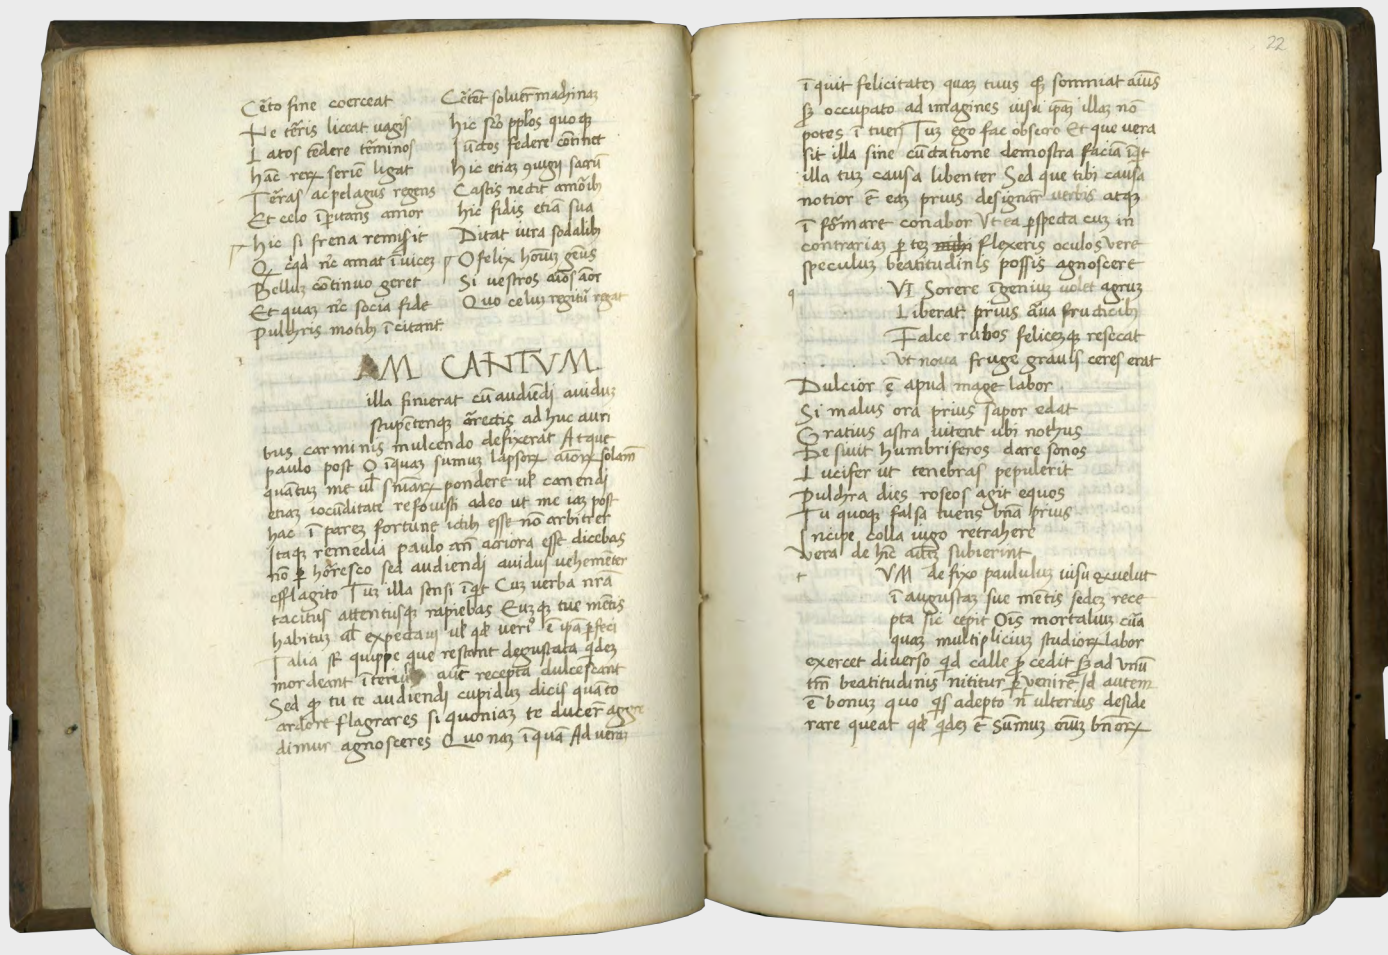 Cẽto fine coerceat
Ne tẽris liceat uagis
Latos tẽdere tẽminos
hãc rerꝝ seriẽ ligat
Tẽras ac pelagus regens
Et celo ĩperitans amor
hic si frena remiserit
Q̃cqd nc̃ amat ĩuicẽ
Belluꝫ cõtinuo geret
Et quaꝫ nc̃ socia fide
pulchris motibꝫ ĩcitant
Cẽtẽt soluẽ machinaꝫ
hic sc̃o pplos quoqꝫ
Iũctos federe cõtinet
hic etiaꝫ ꝯiugij sacrũ
Castis nectit amoribꝫ
hic fidis etiã sua
Dictat iura sodalibꝫ
O felix hoĩuꝫ gẽus
Si uestros aĩos aõr
Quo celuꝫ regitur regat
AM CANTVM
illa finierat cũ audiẽdi auiduꝫ
stupẽtemqꝫ ãrectis ad huc auri
bus carminis mulcendo defixerat Atque
paulo post O ĩquaꝫ sumuꝫ lapsorꝝ aĩorꝝ solam̃
quãtuꝫ me ul̃ sñiarꝝ pondere ul̃ canendi
etiaꝫ iocũditate refouisti adeo ut me iaꝫ post
hac ĩpareꝫ fortune ictibꝫ esse nõ arbitrer
Itaqꝫ remedia paulo añ acriora esse dicebas
nõ ꝑhõresco sed audiendi auidus uehemẽter
efflagito Tuꝫ illa sensi ĩqt Cuꝫ uerba nrã
tacitus attentusqꝫ rapiebas Euꝫqꝫ tue mẽtis
habituꝫ ul̃ expectaui ul̃ qđ ueriꝰ ẽ ipã ꝑfeci
Talia st̃ quippe que restant degustata qdeꝫ
mordeant ĩterius aũt recepta dulcescant
Sed qꝫ tu te audiendi cupiduꝫ dicis quãto
ardore flagrares si quoniaꝫ te ducer̃ aggre
dimur agnosceres Quonaꝫ ĩquã Ad ueraꝫ
22
ĩquit felicitateꝫ quaꝫ tuus qꝫ somniat aĩus
sꝫ occupato ad imagines uisu ipaꝫ illaꝫ nõ
potes ĩtueri Tuꝫ ego fac obsecro Et que uera
sit illa sine cũctatione demostra faciã ĩqt
illa tuꝫ causa libenter Sed que tibi causa
notior ẽ eaꝫ prius designar̃ uerbis atqꝫ
ĩfõmare conabor Vt ea ꝑspecta cuꝫ in
contrariaꝫ ꝑteꝫ flexeris oculos vere
speculuꝫ beatitudinis possis agnoscere
q VI Serere ĩgenuuꝫ uolet agruꝫ
Liberat prius arua fruticibꝫ
Falce rubos felicemqꝫ resecat
Vt noua fruge grauis ceres erat
Dulcior ẽ apud mage labor
Si malus ora prius sapor edat
Gratius astra nitent ubi nothus
Desiuit humbriferos dare sonos
Lucifer ut tenebras pepulerit
Pulchra dies roseos agit equos
Tu quoqꝫ falsa tuens bña prius
Incipe colla iugo retrahere
Vera dehic aĩuꝫ subierint
t VM defixo paululuꝫ uisu & uelut
ĩ augustaꝫ sue mẽtis sedeꝫ rece
pta sic cepit Oĩs mortaliuꝫ cũa
quaꝫ multipliciuꝫ studiorꝝ labor
exercet diuerso qđ calle ꝓcedit sꝫ ad vnũ
tm̃ beatitudinis nititur ꝑuenire Id autem
ẽ bonuꝫ quo qs adepto nl̃ ulterius deside
rare queat qđ qdeꝫ ẽ sũmuꝫ oĩuꝫ bñorꝝ